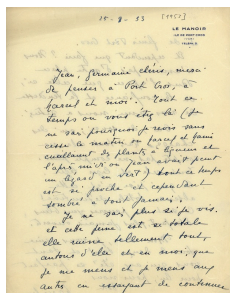 15-8-53 [1953]
LE MANOIR
ILE DE PORT-CROS
(VAR)
TÉLÉPH. 3
Jean, Germaine chéris, merci
de penser à Port Cros, à
Marcel et moi. Tout ce
temps où vous étiez là (je
ne sais pourquoi je vois sans
cesse le matin où
cueillant des plants
l'après midi où Jean avait peint
un lézard en vert) tout ce temps
est si proche et cependant
sombré à tout jamais.
Je ne sais plus si je vis.
et cette peine est si totale
elle ruine tellement tout,
autour d'elle et en moi, que
je me mens et je mens aux
autres en essayant de continuer